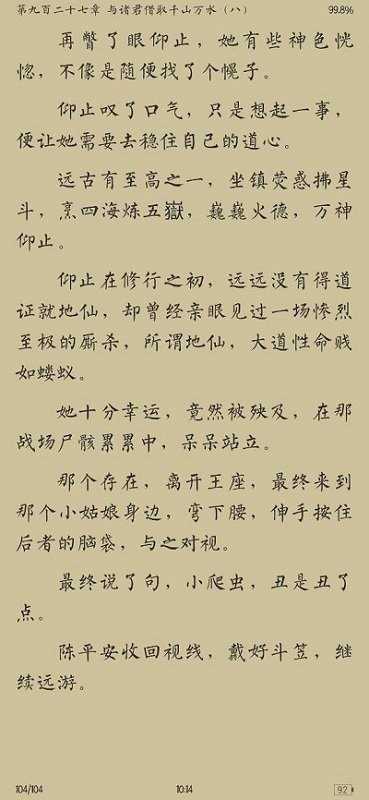 第九百二十七章 与诸君借取千山万水（八） 99.8%
再瞥了眼仰止，她有些神色恍
惚，不像是随便找了个幌子。
仰止叹了口气，只是想起一事，
便让她需要去稳住自己的道心。
远古有至高之一，坐镇荧惑拂星
斗，烹四海炼五嶽，巍巍火德，万神
仰止。
仰止在修行之初，远远没有得道
证就地仙，却曾经亲眼见过一场惨烈
至极的厮杀，所谓地仙，大道性命贱
如蝼蚁。
她十分幸运，竟然被殃及，在那
战场尸骸累累中，呆呆站立。
那个存在，离开王座，最终来到
那个小姑娘身边，弯下腰，伸手按住
后者的脑袋，与之对视。
最终说了句，小爬虫，丑是丑了
点。
陈平安收回视线，戴好斗笠，继
续远游。
104/104 10:14 92